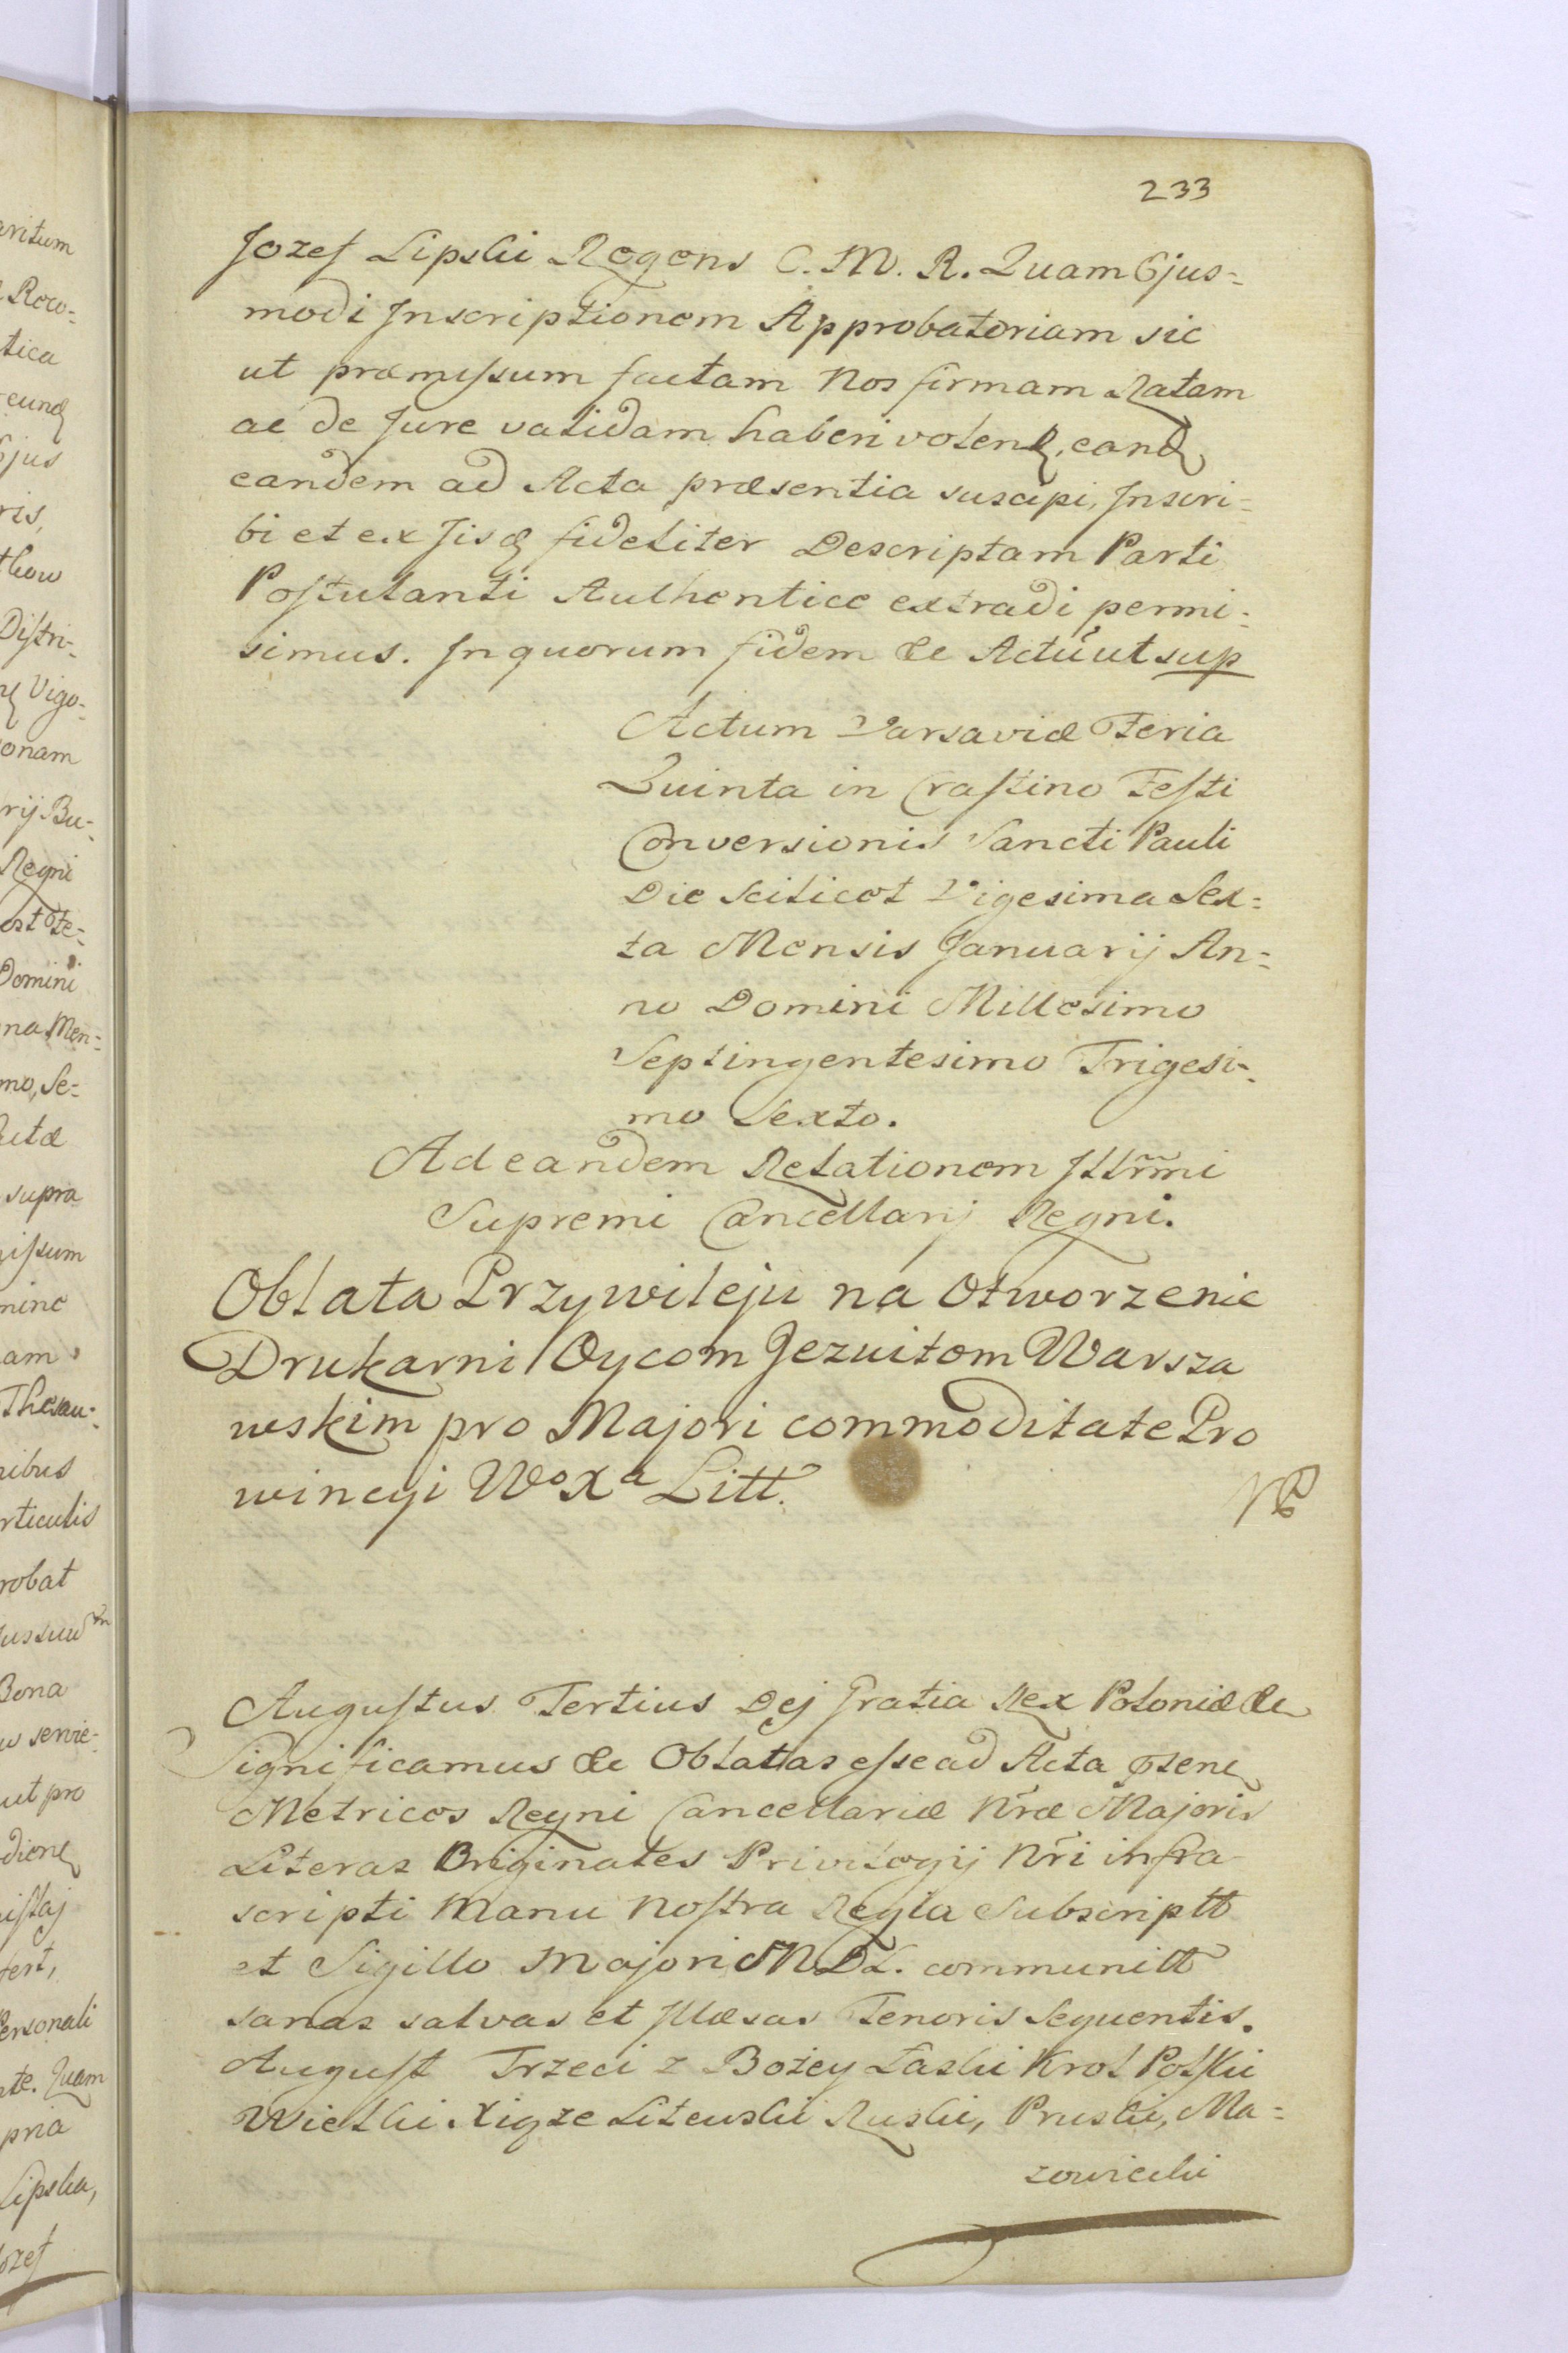 233
Jozef Lipski Regens C. M. R. Quam Ejus=
modi Inscriptionem Approbatoriam sic
ut præmissum factam Nos firmam Ratam
ac de Jure validam haberi volen, ean
eandem ad Acta præsentia suscipi, Inscri=
bi et ex Jisq fideliter Descriptam Parti
Postulanti Authentice extradi permi=
simus. In quorum fidem &c Actũ ut sup
Actum Varsaviæ Feria
Quinta in Crastino Festi
Conversionis Sancti Pauli
Die Scilicet Vigesima Sex=
ta Mensis Januarij An=
no Domini Millesimo
Septingentesimo Trigesi=
mo Sexto.
Ad eandem Relationem Illr̃mi
Supremi Cancellarij Regni.
Oblata Przywileju ná Otworzenie
Drukarni Oycom Jezuitom Warsza
wskim pro Majori commoditate Pro
wincyi Wo Xa Litt.
Augustus Tertius Dej Gratia Rex Poloniæ &c
Significamus &c Oblatas esse ad Acta psen
Metrices Regni Cancellariæ Nræ Majoris
Literas Originales Privilegij Nri infra
scripti Manu Nostra Regia Subscriptt
et Sigillo Majori M D L. communitt
sanas salvas et Illæsas Tenoris Sequentis.
August Trzeci z Bożey Łaski Krol Polski
Wielki Xiąze Litewski Ruski, Pruski, Ma=
zowiecki
aritum
Roco=
tica
eunq
Ejus
ris,
thow
Distri=
Vigo=
onam
rij Bu=
Regni
ost Fe=
Domini
na Men=
mo, Se=
supra
missum
mine
am
Thesau=
nibus
rticulis
robat
Bona
servie=
ut pro
dione
fert,
Personali
te. Quam
pria
Lipska,
ozef